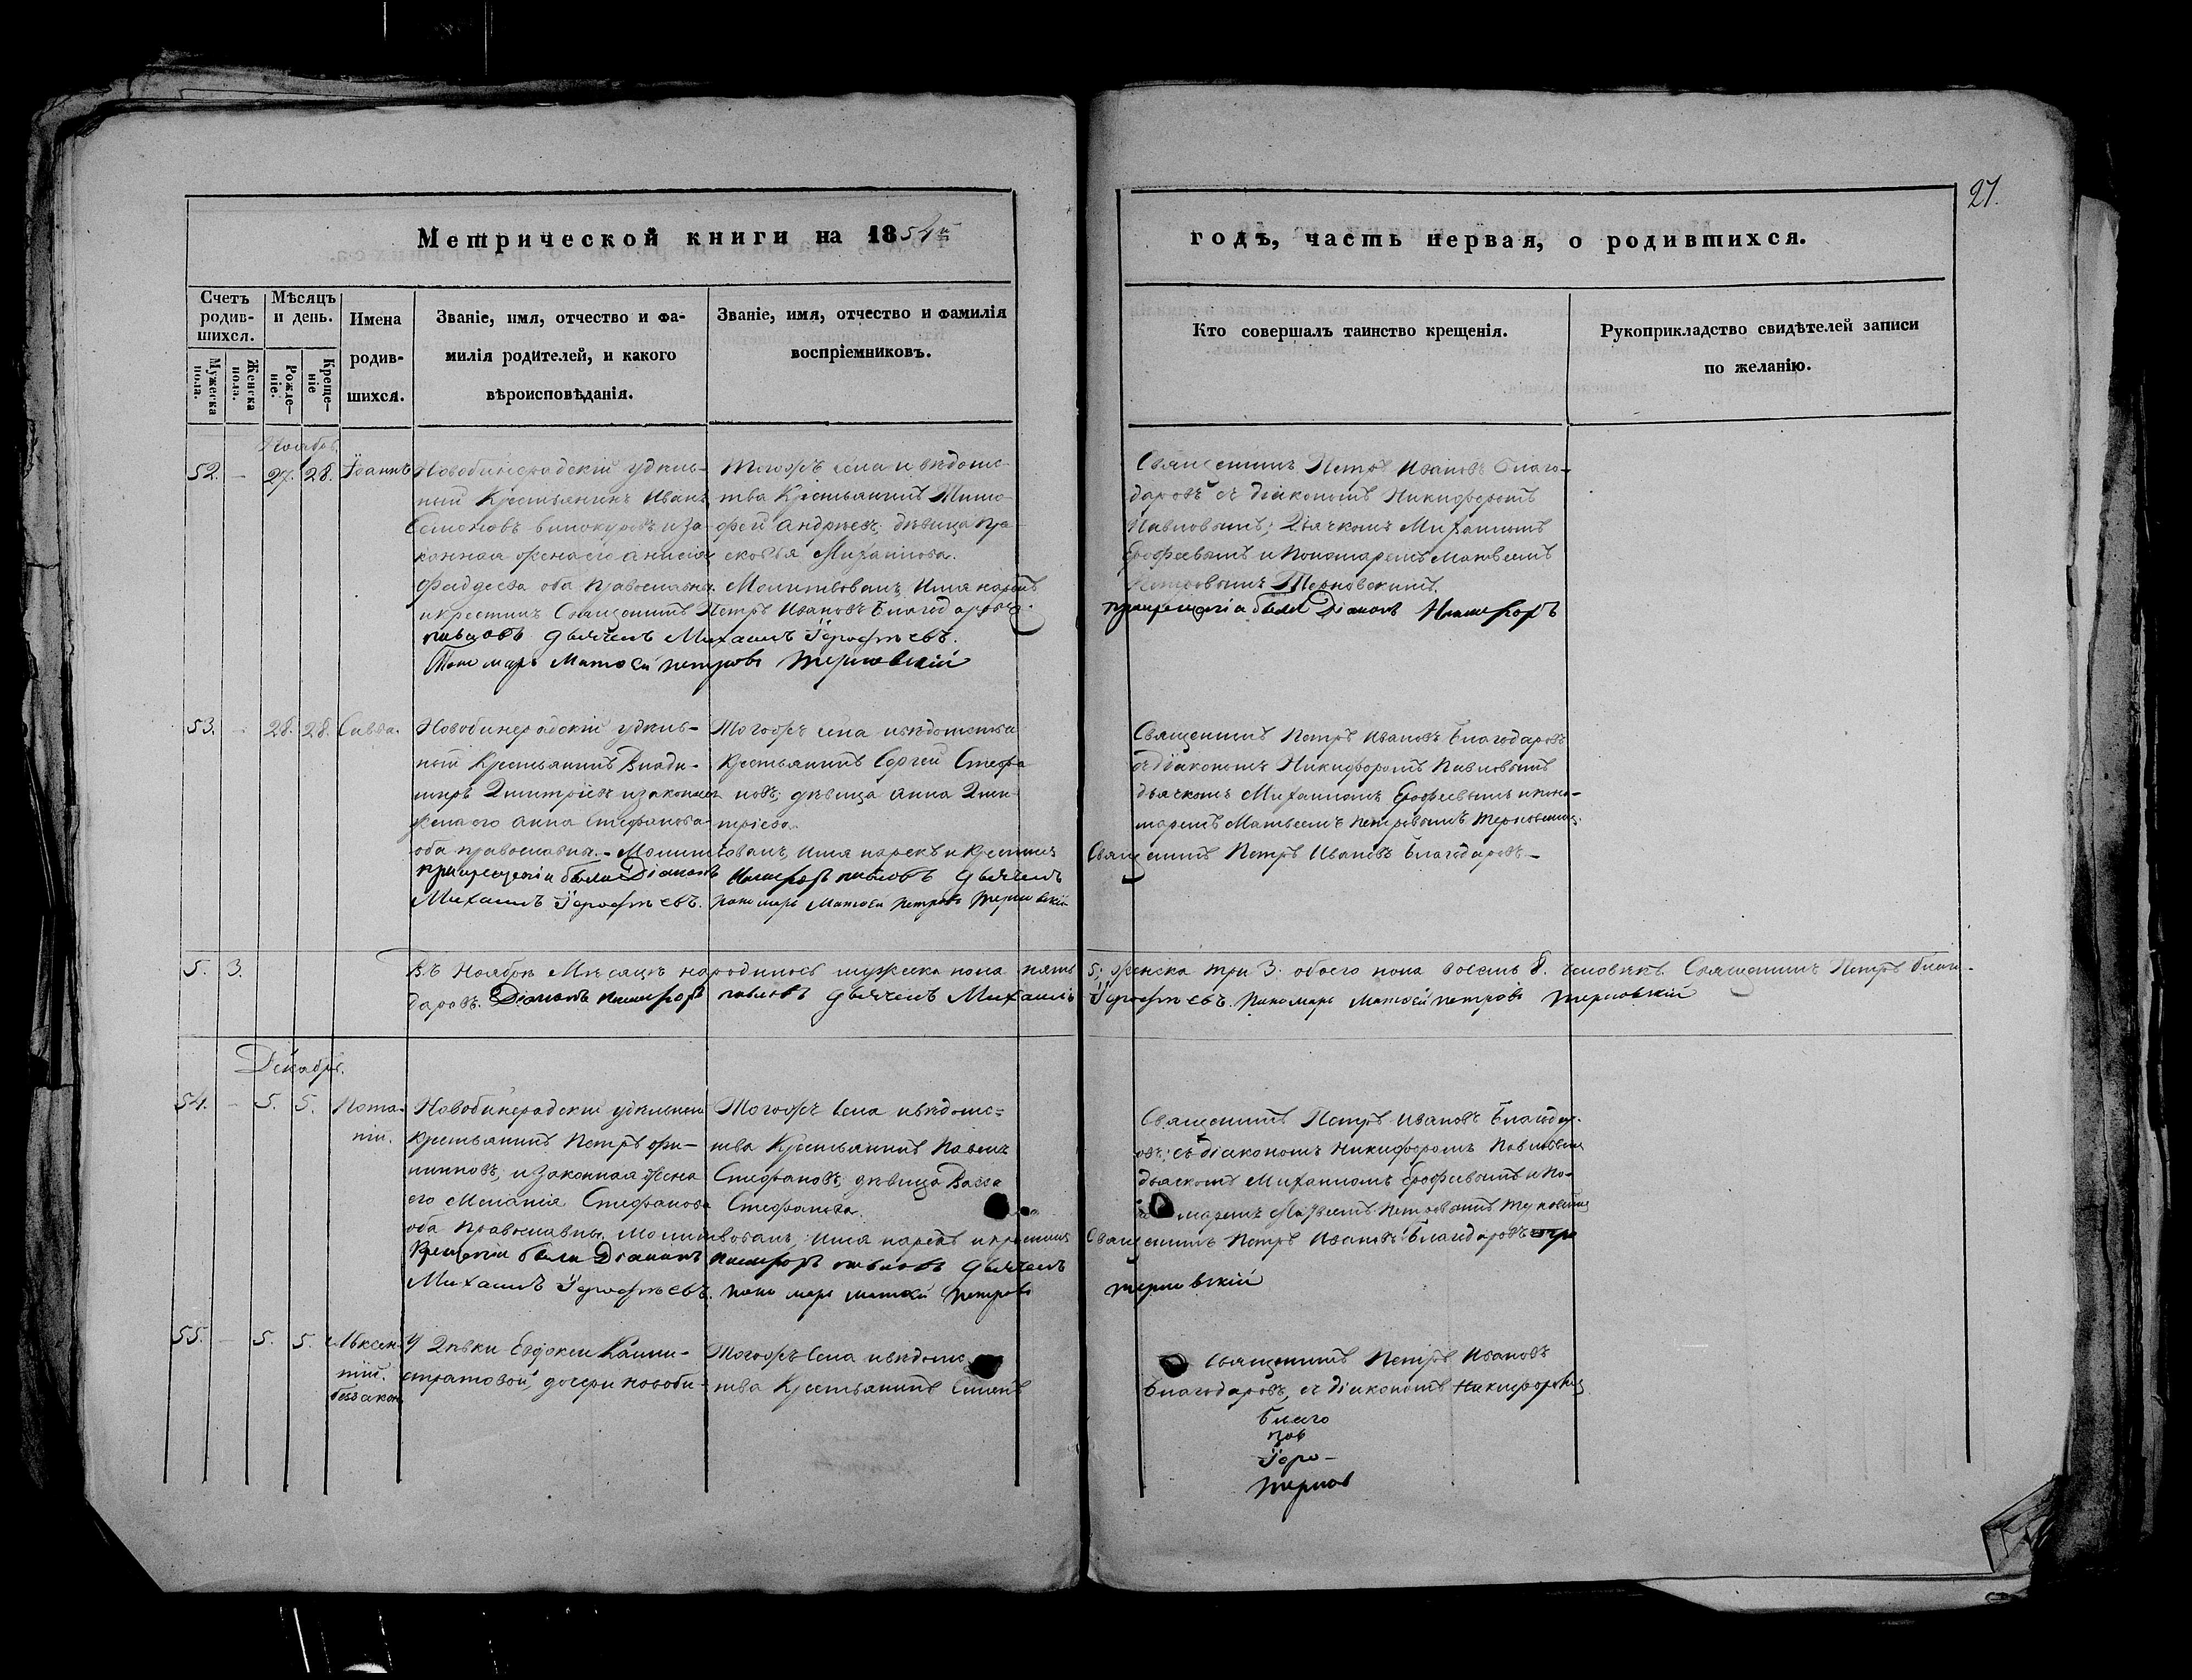 27.
Метрической книги на 1854й
годъ, часть первая, о родившихся.
Счетъ родив-шихся.
Мужеска пола.
Женска пола.
Мѣсяцъ и день.
Рожде-ніе.
Креще-ніе
Имена родив-шихся.
Званіе, имя, отчество и фа-
милія родителей, и какого
вѣроисповѣданія.
Званіе, имя, отчество и фамилія
воспріемниковъ.
Кто совершалъ таинство крещенія.
Рукоприкладство свидѣтелей записи
по желанію.
Ноябрь
52. - 27. 28. Іоаннъ
Новобинерадскій удѣль-
ный Крестьянинъ Иванъ
Семоновъ Винокуровъ и за-
конная жена его Анисія
Фаддеева оба православны.
Тогожъ села и вѣдомс-
тва Крестьянинъ Тимо-
фей Андреевъ; дѣвица Пра-
сковья Михайлова.
Молитвовалъ, Имя нарекъ
и крестилъ Священникъ Петръ Ивановъ Благодаровъ.
павловъ дьячекъ Михаилъ Іерофѣевъ.
Поно марь Матвей петровъ терновскій
Священникъ Петръ Ивановъ Благо-
даровъ съ діакономъ Никифоромъ
Павловымъ; Дьячкомъ Михаиломъ
Ерофеевымъ и Пономаремъ Матвеемъ
Петровымъ Терновскимъ.
при крещеніи были Діаконъ Никифоръ
53. - 28. 28. Савва.
Новобинерадскій удѣль-
ный Крестьянинъ Влади-
миръ Димитріевъ и законная
жена его Анна Стефанова
оба православны. - Молитвовалъ, Имя нарекъ и Крестилъ
Тогожъ села и вѣдомства
Крестьянинъ Сергей Стефа
новъ; дѣвица Анна Дими-
тріева.
при крещеніи были Діаконъ Никифоръ павловъ дьячекъ
Михаилъ Іерофѣевъ. поно марь Матвей петровъ терновскій
Священникъ Петръ Ивановъ Благодаровъ
съ діакономъ Никифоромъ Павловымъ
дьячкомъ Михаиломъ Ерофеевымъ и поно-
маремъ Матвеемъ Петровымъ Терновскимъ.
Священникъ Петръ Ивановъ Благодаровъ —
5. 3. Въ Ноябрѣ Мѣсяцѣ народилось мужеска пола пять 5; женска три 3. обоего пола восемь 8. человѣкъ. Священникъ Петръ Благо-
даровъ. Діаконъ Никифоръ павловъ дьячекъ Михаилъ Іерофѣевъ. поно марь Матвей петровъ терновскій
Декабрь.
54. - 5. 5. Пота-
пій.
Новобинерадскій удѣльный
Крестьянинъ Петръ Фи-
липповъ, и законная жена
его Меланія Стефанова
оба православны. Молитвовалъ, Имя нарекъ и крестилъ
Тогожъ села и вѣдомс=
тва Крестьянинъ Павелъ
Стефановъ; дѣвица Васса
Стефанова.
Крещеніи были Діаконъ Никифоръ павловъ дьячекъ
Михаилъ Іерофѣевъ. поно марь матвей петровъ
Священникъ Петръ Ивановъ Благодар-
овъ; съ діакономъ Никифоромъ Павловымъ
дьячкомъ Михаиломъ Ерофеевымъ и По-
маремъ Матвеемъ Петровымъ Терновскимъ
Священникъ Петръ Ивановъ Благодаровъ при
терновскій
55. - 5. 5. Авксен-
тій.
беззакон.
У Дѣвки Евдокеи Калли-
стратовой, дочери новоби-
Тогожъ села и вѣдомс-
тва Крестьянинъ Симеонъ
Священникъ Петръ Ивановъ
Благодаровъ, съ діакономъ Никифоромъ
благо
пав
Іеро-
тернов